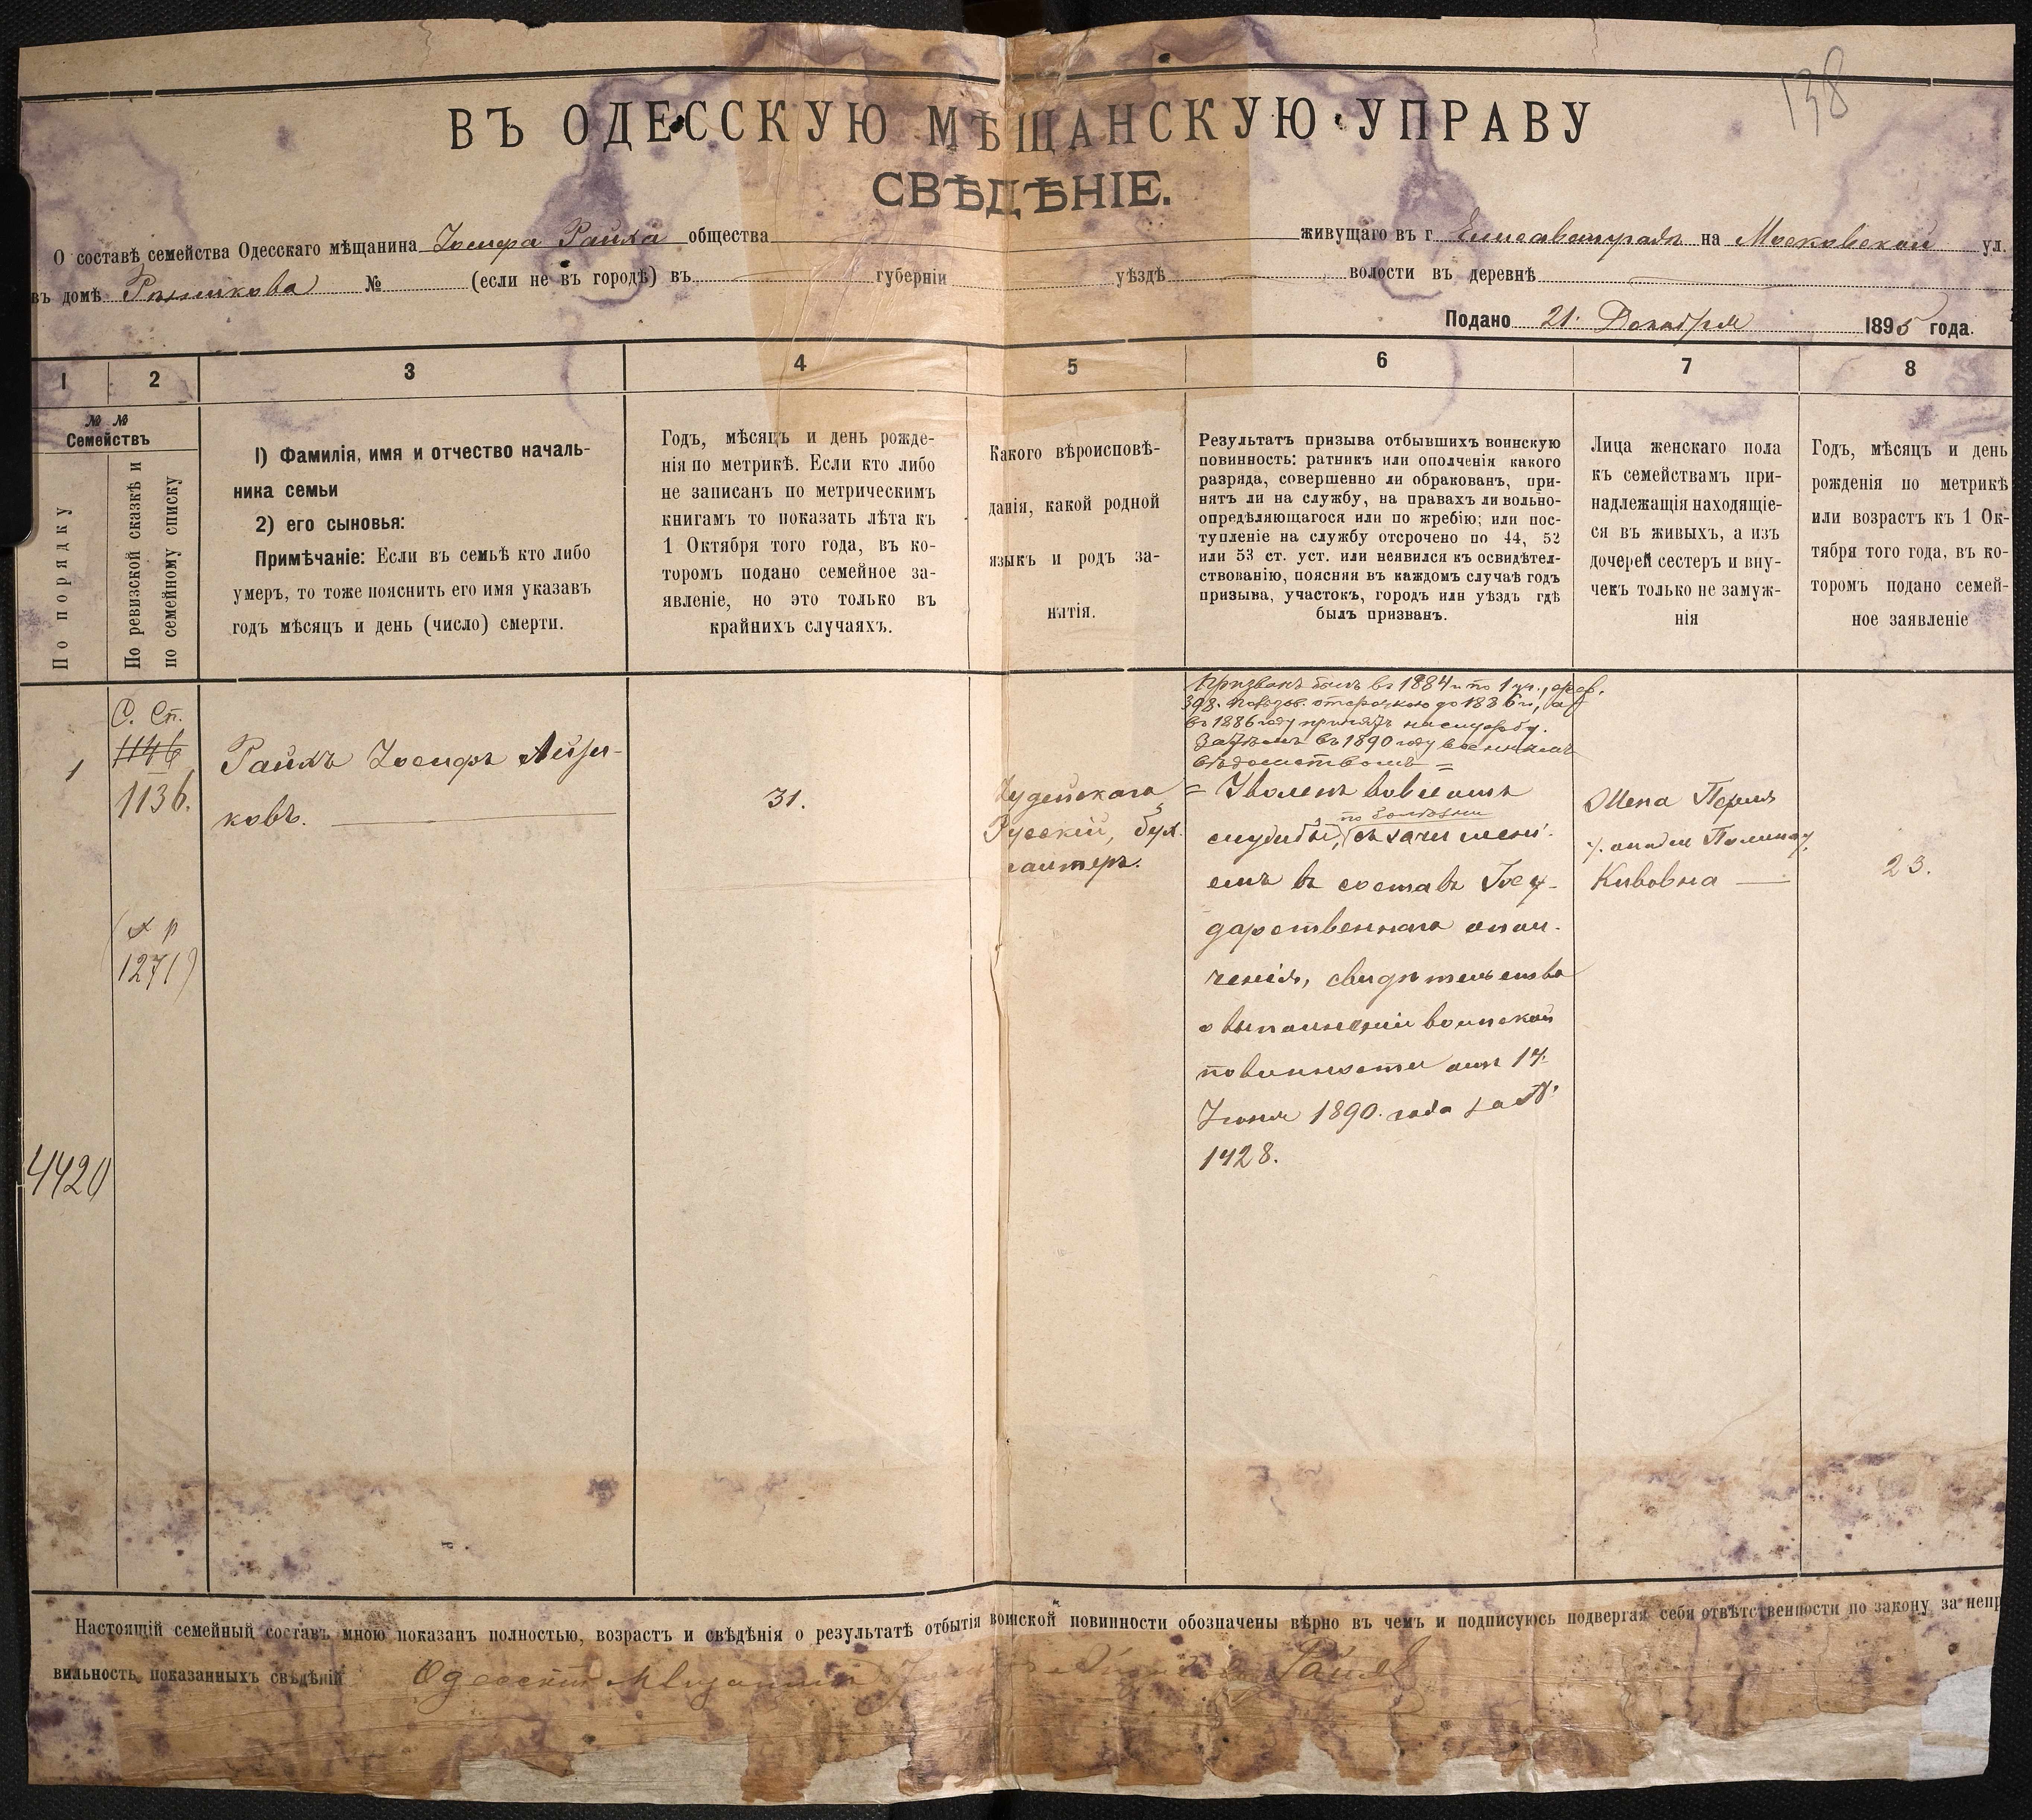 138
ВЪ ОДЕССКУЮ МѢЩАНСКУЮ УПРАВУ
СВѢДѢНІЕ.
О составѣ семейства Одесскаго мѣщанина Іосифа Райха общества живущаго въ г. Елисаветградѣ на Московской ул.
въ домѣ № (если не въ городѣ) въ губерніи уѣздѣ волости въ деревнѣ
Подано 21. Декабря 1895 года.
1 2 3 4 5 6 7 8
№ №
Семействъ
По порядку
По ревизской сказкѣ и
по семейному списку
1) Фамилія, имя и отчество началь-
ника семьи
2) его сыновья:
Примѣчаніе: Если въ семьѣ кто либо
умеръ, то тоже пояснить его имя указавъ
годъ мѣсяцъ и день (число) смерти.
Годъ, мѣсяцъ и день рожде-
нія по метрикѣ. Если кто либо
не записанъ по метрическимъ
книгамъ то показать лѣта къ
1 Октября того года, въ ко-
торомъ подано семейное за-
явленіе, но это только въ
крайнихъ случаяхъ.
Какого вѣроисповѣ-
данія, какой родной
языкъ и родъ за-
нятія.
Результатъ призыва отбывшихъ воинскую
повинность: ратникъ или ополченія какого
разряда, совершенно ли обракованъ, при-
нятъ ли на службу, на правахъ ли вольно-
опредѣляющагося или по жребію; или пос-
тупленіе на службу отсрочено по 44, 52
или 53 ст. уст. или неявился къ освидѣтел-
ствованію, поясняя въ каждомъ случаѣ годъ
призыва, участокъ, городъ или уѣздъ гдѣ
былъ призванъ.
Лица женскаго пола
къ семействамъ при-
надлежащія находящіе-
ся въ живыхъ, а изъ
дочерей сестеръ и вну-
чекъ только не замуж-
нія
Годъ, мѣсяцъ и день
рожденія по метрикѣ
или возрастъ къ 1 Ок-
тября того года, въ ко-
торомъ подано семей-
ное заявленіе
1
С. Сп.
1146
1136.
1271)
4420
Райхъ Іосифъ Айзи-
ковъ.
31.
Іудейскаго
Русскій, бух-
галтеръ.
Призванъ былъ въ 1884 г. по 1 уч.,
398. отсрочкою до 1886 г., а
въ 1886 году принятъ на службу.
Затѣмъ въ 1890 году военнымъ
вѣдомствомъ =
= Уволенъ вовсе отъ
по болѣзни
службы, съ зачислені-
емъ въ составъ Госу-
дарственнаго опол-
ченія, свидѣтельство
о выполненіи воинской
повинности отъ 14
Іюня 1890. года за №
1428.
Жена Перля
Кивовна
23.
Настоящій семейный составъ мною показанъ полностью, возрастъ и свѣдѣнія о результатѣ отбытія воинской повинности обозначены вѣрно въ чемъ и подписуюсь подвергая себя отвѣтственности по закону за непр
вильность показанныхъ свѣдѣній Одесскій Мѣщанинъ Райхъ